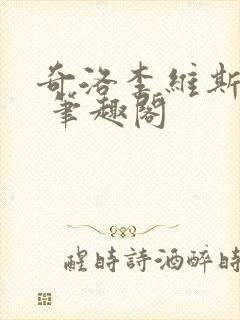 奇洛李維斯
筆趣閣
醒時詩酒醉時